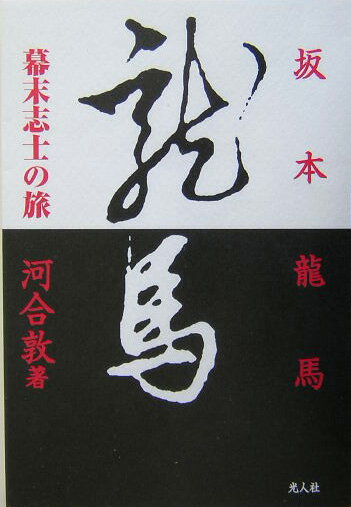 坂本龍馬
龍馬
幕末志士の旅
河合敦著
光人社